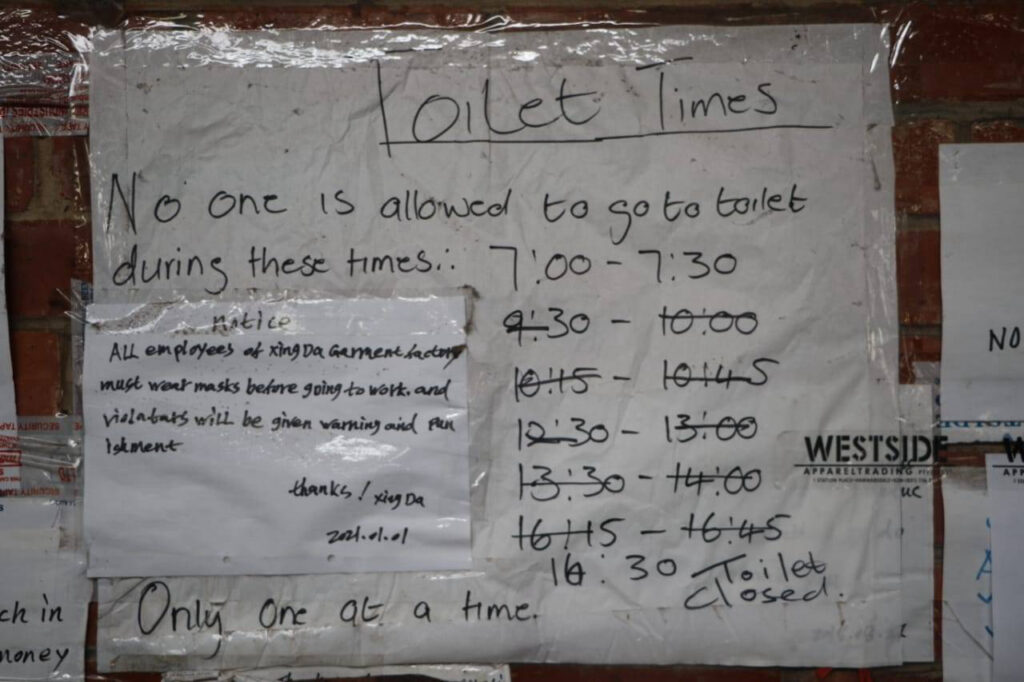 Toilet Times
No one is allowed to go to toilet
during these times: 7:00 - 7:30
9:30 - 10:00
10:15 - 10:45
12:30 - 13:00
13:30 - 14:00
16:15 - 16:45
16:30 Toilet
closed.
Only one at a time.
notice
ALL employees of Xing Da Garment factory
must wear masks before going to work. and
violators will be given warning and Pun
ishment
thanks! Xing Da
2021.01.01
WESTSIDE
APPARELTRADING
NO
W
A
UC
SECURITY TAPE
ch in
money